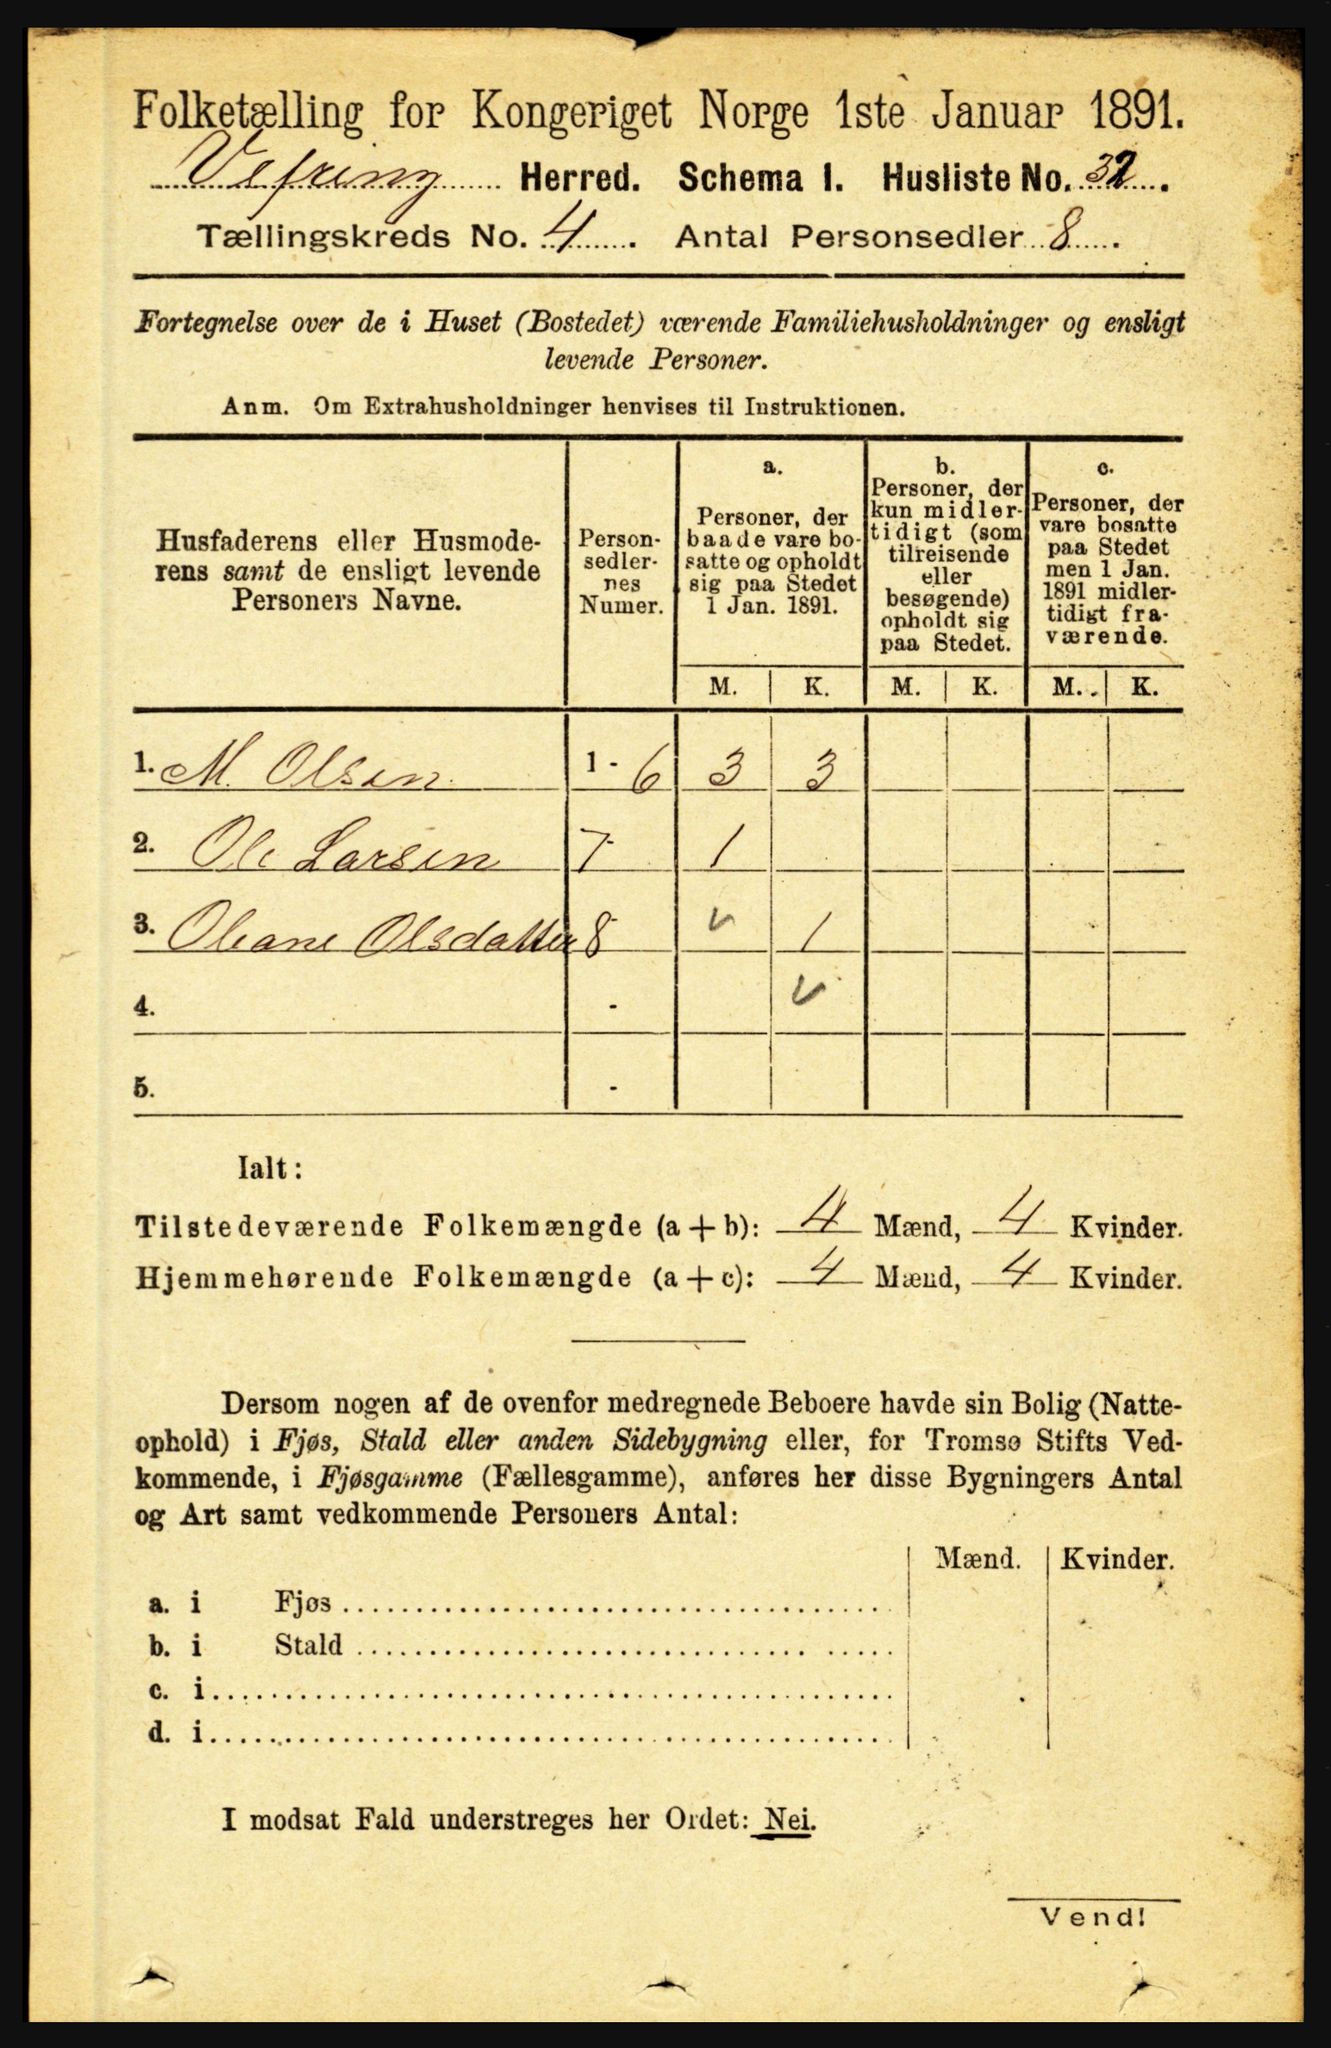 Folketælling for Kongeriget Norge 1ste Januar 1891.
Vefring Herred. Schema I. Husliste No. 32.
Tællingskreds No. 4. Antal Personsedler 8.
Fortegnelse over de i Huset (Bostedet) værende Familiehusholdninger og ensligt
levende Personer.
Anm. Om Extrahusholdninger henvises til Instruktionen.
Husfaderens eller Husmode-
rens samt de ensligt levende
Personers Navne.
Person-
sedler-
nes
Numer.
a.
Personer, der
baade vare bo-
satte og opholdt
sig paa Stedet
1 Jan. 1891.
b.
Personer, der
kun midler-
tidigt (som
tilreisende
eller
besøgende)
opholdt sig
paa Stedet.
c.
Personer, der
vare bosatte
paa Stedet
men 1 Jan.
1891 midler-
tidigt fra-
værende.
M. K. M. K. M. K.
1. M. Olsen 1 - 6 3 3
2. Ole Larsen 7 1
3. Oleane Olsdatter 8 1
4. -
5. -
Ialt:
Tilstedeværende Folkemængde (a + b): 4 Mænd, 4 Kvinder.
Hjemmehørende Folkemængde (a + c): 4 Mænd, 4 Kvinder.
Dersom nogen af de ovenfor medregnede Beboere havde sin Bolig (Natte-
ophold) i Fjøs, Stald eller anden Sidebygning eller, for Tromsø Stifts Ved-
kommende, i Fjøsgamme (Fællesgamme), anføres her disse Bygningers Antal
og Art samt vedkommende Personers Antal:
Mænd. Kvinder.
a. i Fjøs
b. i Stald
c. i
d. i
I modsat Fald understreges her Ordet: Nei.
Vend!